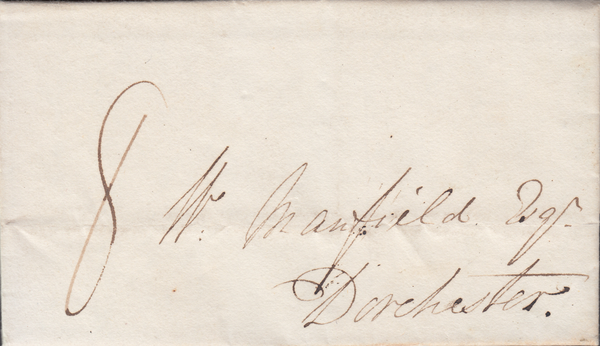 8 Wm. Manfield Esqr.
Dorchester.